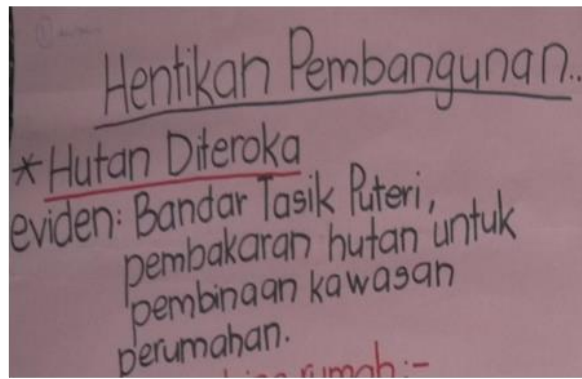 Hentikan Pembangunan..
* Hutan Diteroka
eviden: Bandar Tasik Puteri,
pembakaran hutan untuk
pembinaan kawasan
perumahan.
rumah:-